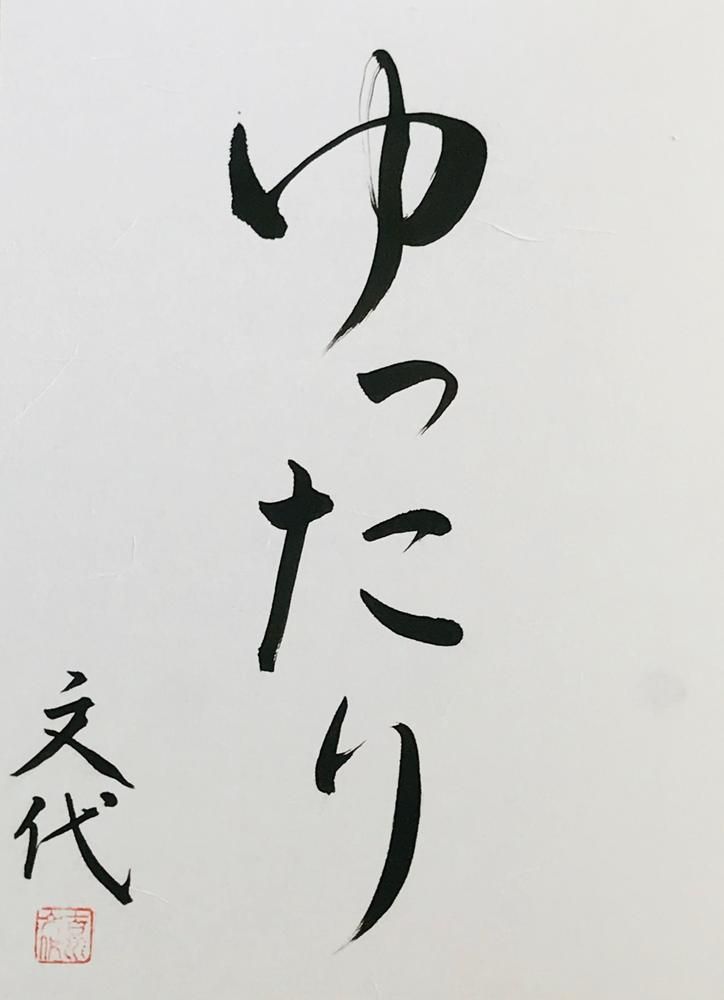 ゆったり
文代